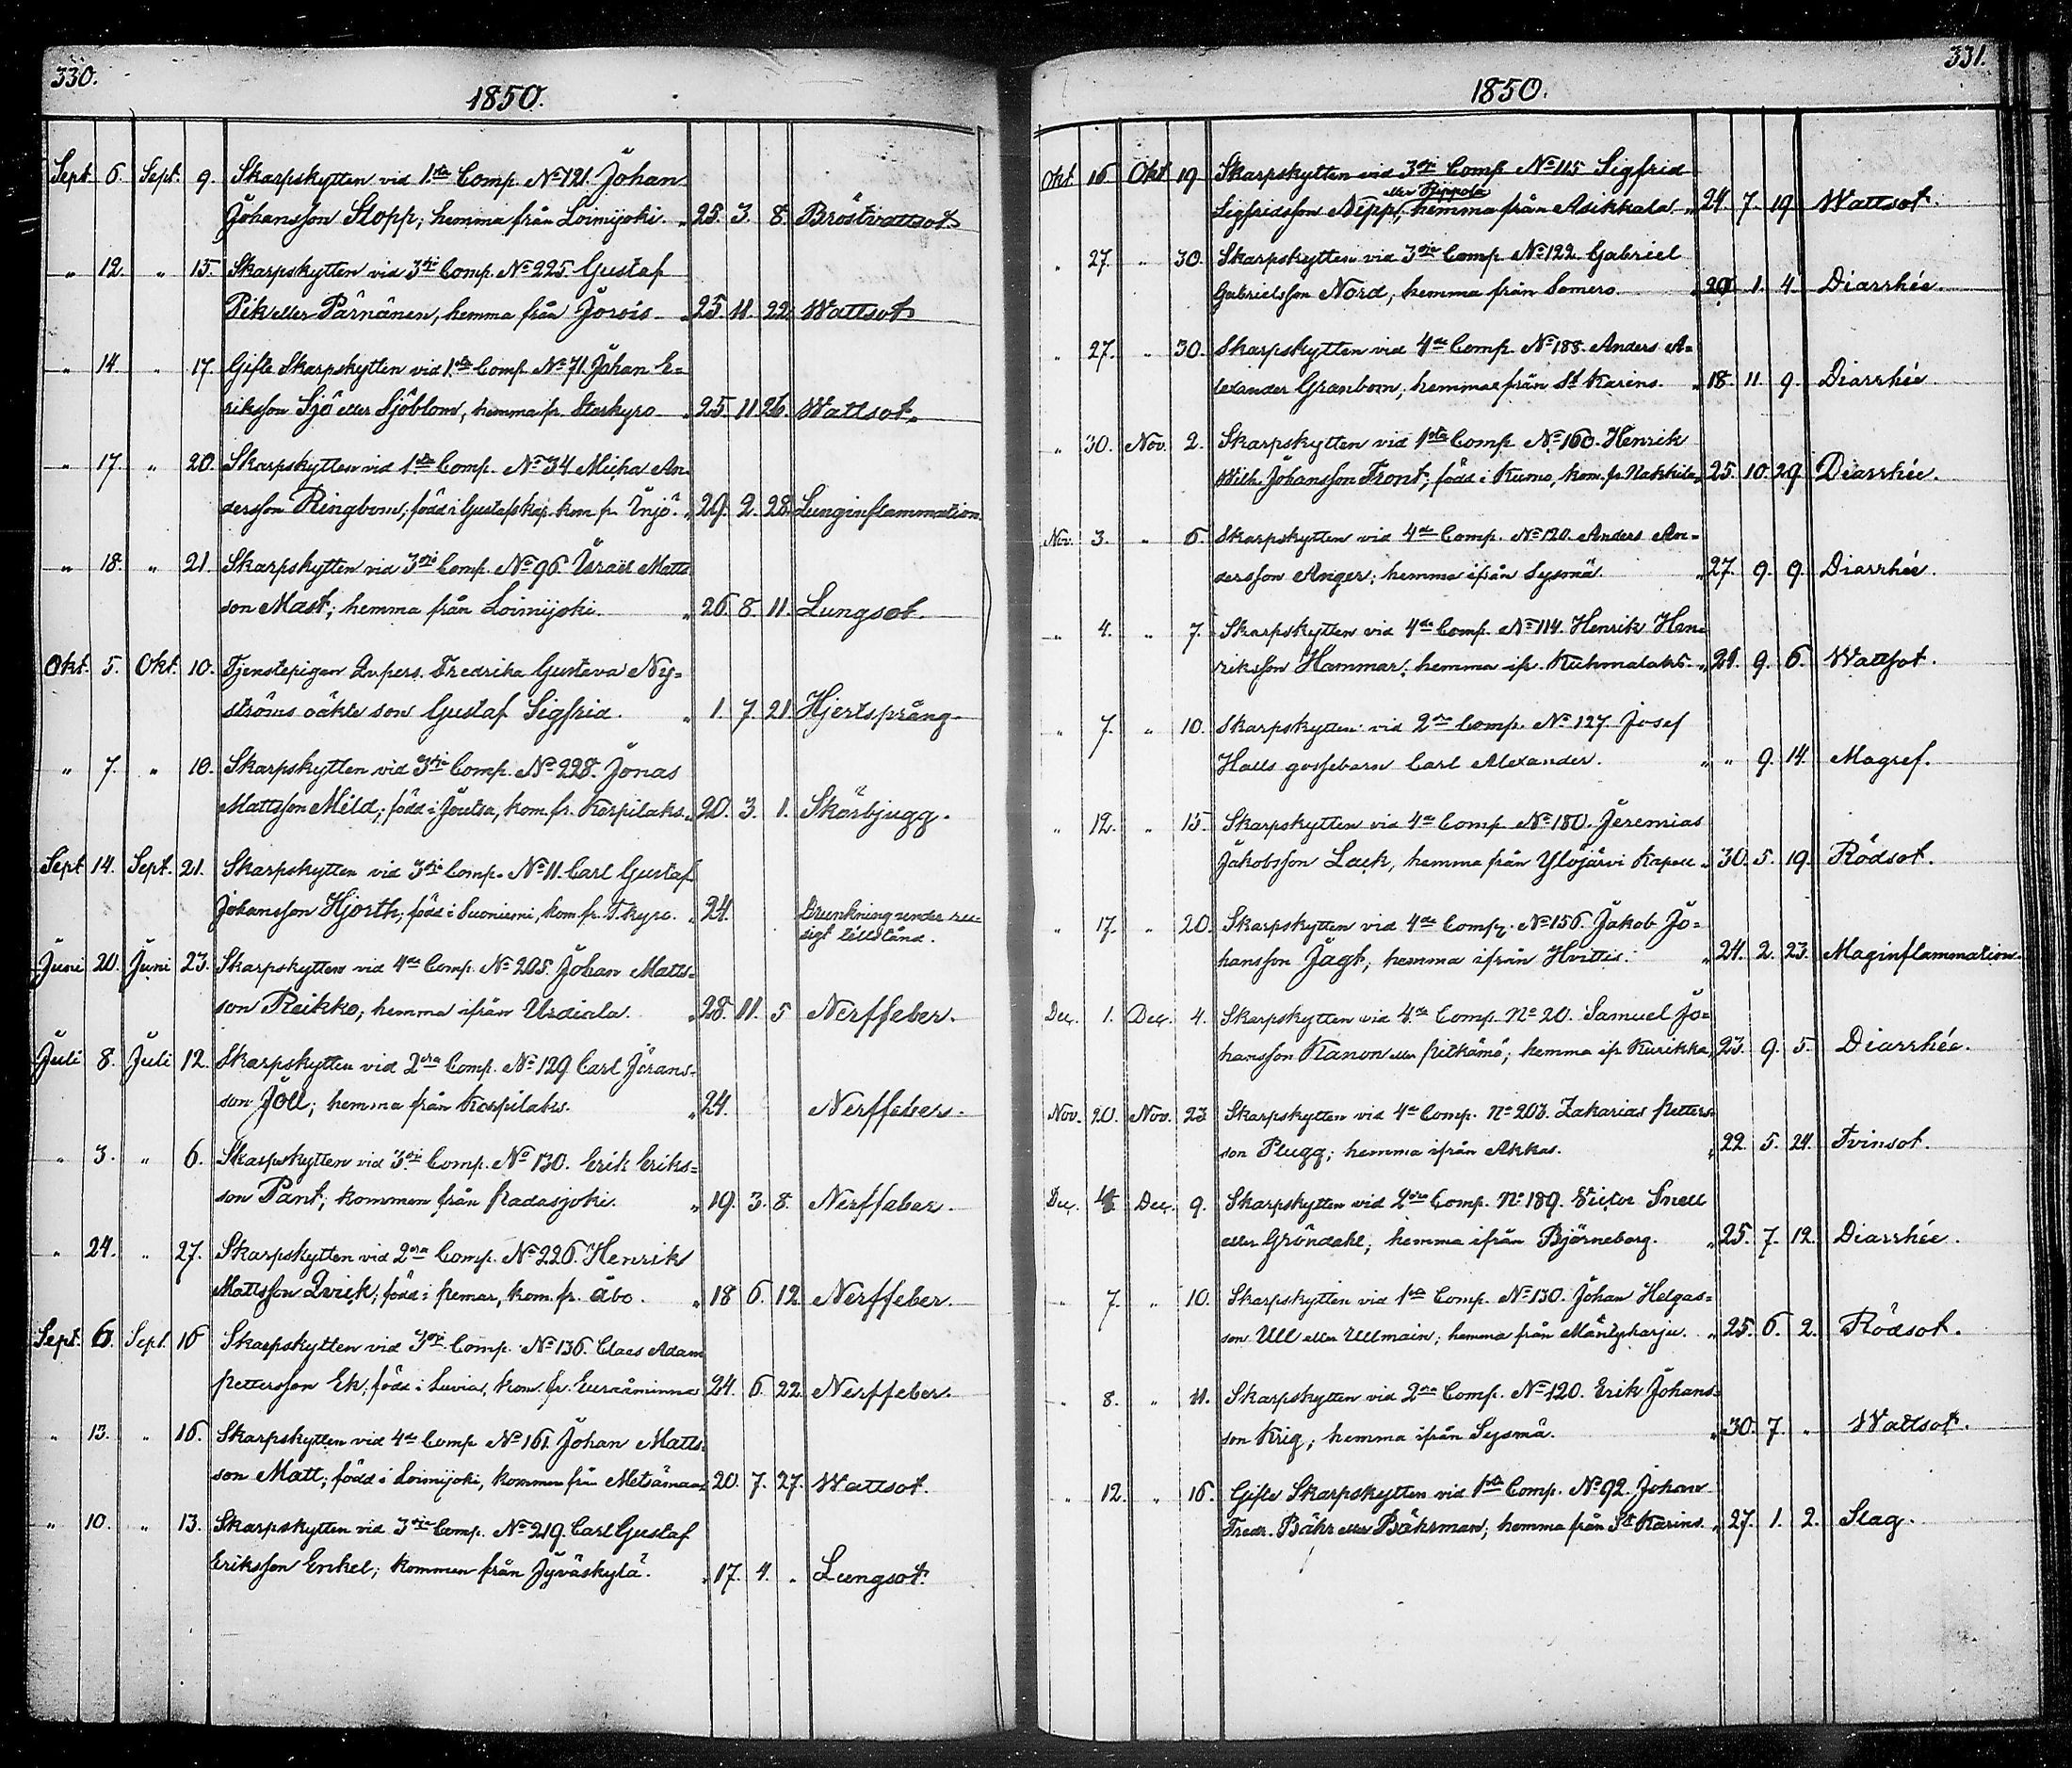 330.
1850.
Sept. 6. Sept. 9. Skarpskytten vid 1sta Comp. No 121. Johan
Johansson Stopp; hemma från Loimijoki. „ 25. 3. 8. Bröstvattsot
„ 12. „ 15. Skarpskytten vid 3dje Comp. No 225. Gustaf
Pik eller Pärnänen, hemma från Jorois „ 25. 11. 22. Wattsot
„ 14. „ 17. Gifte Skarpskytten vid 1sta Comp. No 71. Johan E-
riksson Sjö eller Sjöblom, hemma fr. Storkyro „ 25. 11. 26. Wattsot.
„ 17. „ 20. Skarpskytten vid 1sta Comp. No 34. Micha An-
dersson Ringbom; född i Gustafs kap. kom fr. Injö. „ 29. 2. 28. Lunginflammation
„ 18. „ 21. Skarpskytten vid 3dje Comp. No 96. Israel Matts
son Mast; hemma från Loimijoki. „ 26. 8. 11. Lungsot.
Okt. 5. Okt. 10. Tjenstepigan Qvpers. Fredrika Gustava Ny-
ströms oäkte son Gustaf Sigfrid. „ 1. 7. 21. Hjertsprång.
„ 7. „ 10. Skarpskytten vid 3dje Comp. No 228. Jonas
Mattsson Mild; född i Joutsa, kom. fr. Korpilaks. „ 20. 3. 1. Skörbjugg.
Sept. 14. Sept. 21. Skarpskytten vid 3dje Comp. No 11. Carl Gustaf
Johansson Hjorth; född i Suoniemi, kom. fr. T.kyro. „ 24. Drunkning under ru-
sigt tillstånd.
Juni 20. Juni 23. Skarpskytten vid 4de Comp. No 205. Johan Matts-
son Reikko; hemma ifrån Urdiala. „ 28. 11. 5 Nerffeber.
Juli 8. Juli 12. Skarpskytten vid 2dra Comp. No 129. Carl Jörans-
son Joll; hemma från Korpilaks. „ 24. Nerffeber.
„ 3. „ 6. Skarpskytten vid 3dje Comp. No 130. Erik Eriks-
son Pant; kommen från Padasjoki. „ 19. 3. 8. Nerffeber.
„ 24. „ 27. Skarpskytten vid 2dra Comp. No 226. Henrik
Mattsson Qvick; född i Pemar, kom. fr. Åbo. „ 18 6. 12 Nerffeber.
Sept. 6. Sept. 16 Skarpskytten vid 3dje Comp. No 136. Claes Adam
Pettersson Ek; född i Luvia, kom. fr. Euraåminne 24. 6. 22 Nerffeber.
„ 13. „ 16. Skarpskytten vid 4de Comp No 161. Johan Matts-
son Matt; född i Loimijoki, kommen från Metsämaa 20. 7. 27. Wattsot.
„ 10. „ 13. Skarpskytten vid 3dje Comp. No 219. Carl Gustaf
Eriksson Enkel; kommen från Jyväskylä. „ 17. 4. „ Lungsot.
331.
1850.
Okt. 16 Okt. 19 Skarpskytten vid 3dje Comp No 115 Sigfrid
eller Rippola
Sigfridsson Nipp, hemma från Asikkala „ 24. 7. 19. Wattsot.
„ 27. „ 30. Skarpskytten vid 3dje Comp No 122 Gabriel
Gabrielsson Nord; hemma från Somero. „ 29. 1. 4. Diarrhée.
„ 27. „ 30. Skarpskytten vid 4de Comp. No 188. Anders A-
lexander Granbom; hemma från St Karins. „ 18. 11. 9. Diarrhée
„ 30. Nov. 2. Skarpskytten vid 1sta Comp No 160. Henrik
Wilh. Johansson Front; född i Kumo, kom. fr. Nakkila, 25. 10. 29. Diarrhée.
Nov. 3. „ 6. Skarpskytten vid 4de Comp. No 120. Anders An-
dersson Anger; hemma ifrån Sysmä. „ 27. 9. 9. Diarrhée.
„ 4. „ 7. Skarpskytten vid 4de Comp. No 114. Henrik Hen-
riksson Hammar; hemma ifr. Kuhmalaks. „ 21. 9. 6. Wattsot.
„ 7. „ 10. Skarpskytten vid 2dra Comp. No 127. Josef
Halls gossebarn Carl Alexander. „ „ 9. 14. Magref.
„ 12. „ 15. Skarpskytten vid 4de Comp No 180. Jeremias
Jakobsson Lack, hemma från Ylöjärvi Kapell „ 30. 5. 19. Rödsot.
„ 17. „ 20. Skarpskytten vid 4de Comp. No 156. Jakob Jo-
hansson Jagt; hemma ifrån Hvittis. „ 24. 2. 23. Maginflammation.
Dec. 1. Dec. 4. Skarpskytten vid 4de Comp. No 20. Samuel Jo-
hansson Kanon eller Pitkämö; hemma ifr. Kurikka, 23. 9. 5. Diarrhée.
Nov. 20. Nov. 23 Skarpskytten vid 4de Comp. No 203. Zakarias Petters-
son Plugg; hemma ifrån Akkas. „ 22. 5. 24. Tvinsot.
Dec. Dec. 9. Skarpskytten vid 2dra Comp. No 189. Victor Snell
eller Gröndahl; hemma ifrån Björneborg. „ 25. 7. 12. Diarrhée.
„ 7. „ 10. Skarpskytten vid 1sta Comp. No 130. Johan Helgas-
son Ull eller Ullmain; hemma från Mäntyharju. „ 25. 6. 2. Rödsot.
„ 8. „ 11. Skarpskytten vid 2dra Comp. No 120. Erik Johans-
son Krig; hemma ifrån Sysmä. „ 30. 7. „ Wattsot.
„ 12. „ 16. Gifte Skarpskytten vid 1sta Comp. No 92. Johan
Fredr. Bähr eller Bährman; hemma från St Karins. „ 27. 1. 2. Slag.